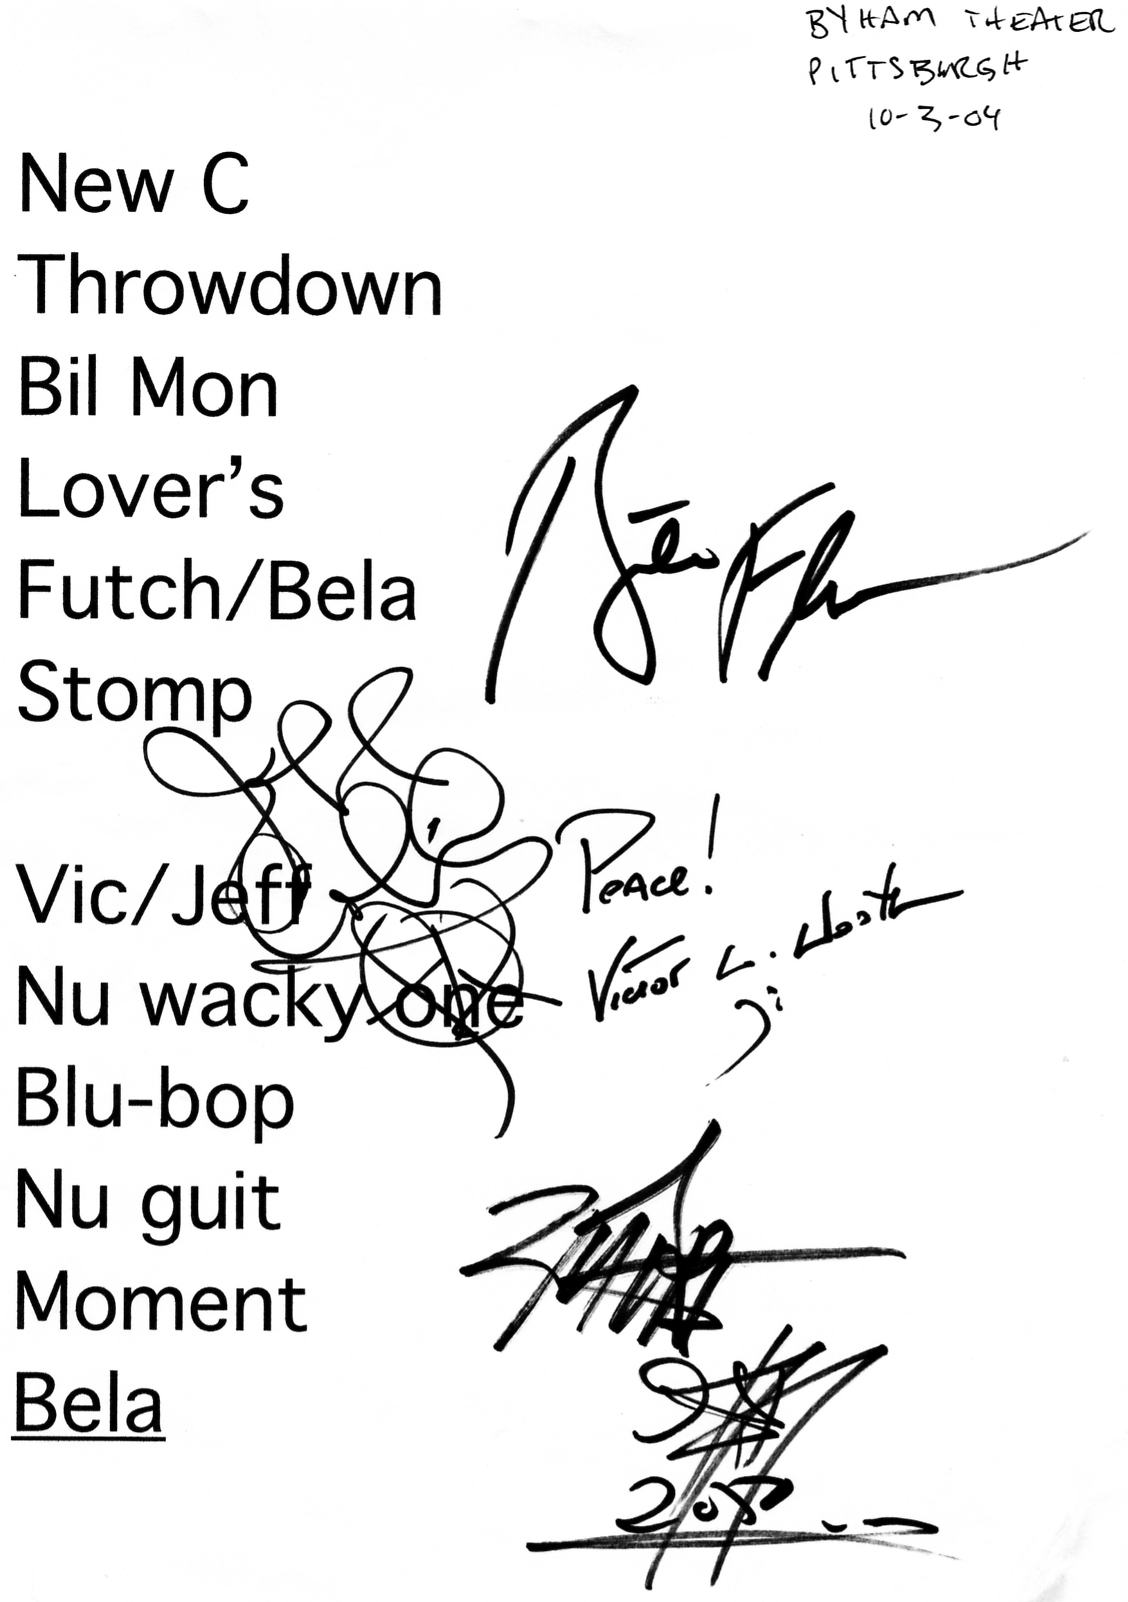 BYHAM THEATER
PITTSBURGH
10-3-04
New C
Throwdown
Bil Mon
Lover's
Futch/Bela
Stomp
Béla Fleck
Peace!
Vic/Jeff
Victor L. Wooten
Nu wacky one
Blu-bop
Nu guit
Moment
Bela